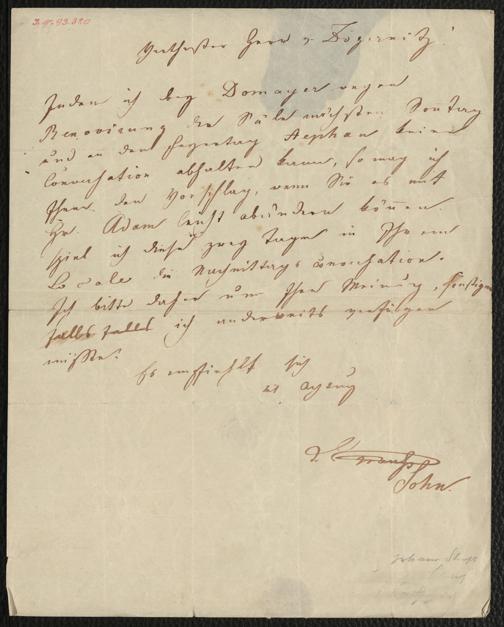 Werthester Herr v Zögernitz!
Indem ich bey Domayer wegen
Renovierung der Säle nächsten Sontag
und an dem Feyertag Stephan keine
Conversation abhalten kann, so mag ich
Ihnen den Vorschlag, wenn Sie es mit
Hr. Adam leicht abändern können.
spiel ich diese zwey Tage in Ihrem
Locale die Nachmittags Conversation.
Ich bitte daher um Ihre Meinung,
falls ich anderweits verfügen
müsste.
Es empfiehlt sich
J. Strauss
Sohn.